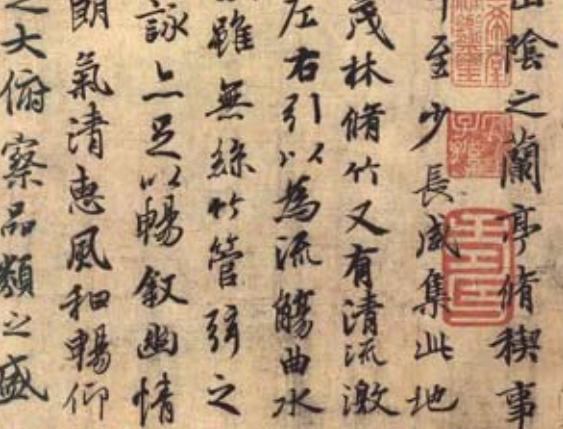 山陰之蘭亭脩稧事
至少長咸集此地
茂林脩竹又有清流激
左右引以為流觴曲水
雖無絲竹管弦之
詠亦足以暢敘幽情
朗氣清惠風和暢仰
之大俯察品類之盛